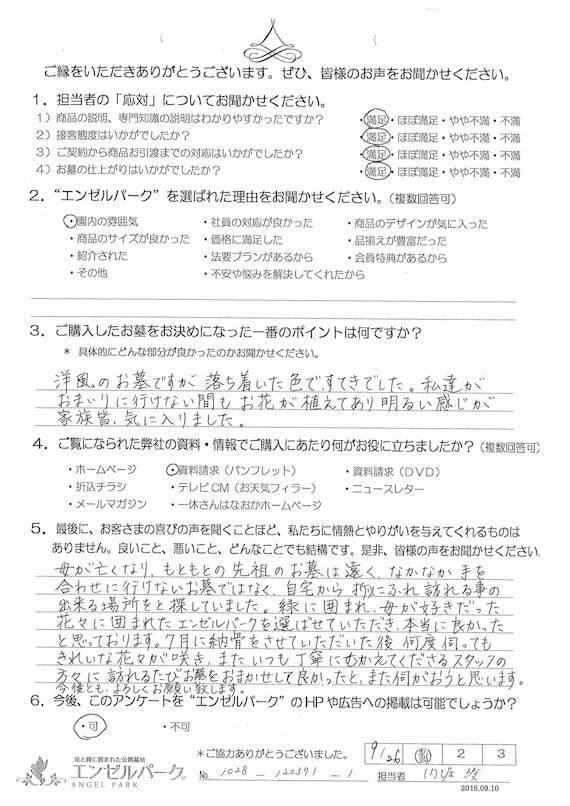 ご縁をいただきありがとうございます。ぜひ、皆様のお声をお聞かせください。
1. 担当者の「応対」についてお聞かせください。
1）商品の説明、専門知識の説明はわかりやすかったですか？ ・満足・ほぼ満足・やや不満・不満
2）接客態度はいかがでしたか？ ・満足・ほぼ満足・やや不満・不満
3）ご契約から商品お引渡までの対応はいかがでしたか？ ・満足・ほぼ満足・やや不満・不満
4）お墓の仕上がりはいかがでしたか？ ・満足・ほぼ満足・やや不満・不満
2. “エンゼルパーク”を選ばれた理由をお聞かせください。（複数回答可）
・園内の雰囲気 ・社員の対応が良かった ・商品のデザインが気に入った
・商品のサイズが良かった ・価格に満足した ・品揃えが豊富だった
・紹介された ・法要プランがあるから ・会員特典があるから
・その他 ・不安や悩みを解決してくれたから
3. ご購入したお墓をお決めになった一番のポイントは何ですか？
* 具体的にどんな部分が良かったのかお聞かせください。
洋風のお墓ですが 落ち着いた色ですてきでした。私達が
おまいりに行けない間も お花が植えてあり 明るい感じが
家族皆、気に入りました。
4. ご覧になられた弊社の資料・情報でご購入にあたり何がお役に立ちましたか？（複数回答可）
・ホームページ ・資料請求（パンフレット） ・資料請求（DVD）
・折込チラシ ・テレビCM（お天気フィラー） ・ニュースレター
・メールマガジン ・一休さんはなおかホームページ
5. 最後に、お客さまの喜びの声を聞くことほど、私たちに情熱とやりがいを与えてくれるものは
ありません。良いこと、悪いこと、どんなことでも結構です。是非、皆様の声をお聞かせください。
母が亡くなり、もともとの先祖のお墓は遠く、なかなか手を
合わせに行けないお墓ではなく、自宅から 折にふれ訪れる事の
出来る場所をと探していました。緑に囲まれ、母が好きだった
花々に囲まれたエンゼルパークを選ばせていただき、本当に良かった
と思っております。7月に納骨をさせていただいた後 何度伺っても
きれいな花々が咲き、また いつも丁寧にむかえてくださるスタッフの
方々に 訪れるたびお墓をおまかせして良かったと、また伺おうと思います。
今後とも、よろしくお願い致します。
6. 今後、このアンケートを“エンゼルパーク”のHPや広告への掲載は可能でしょうか？
・可 ・不可
*ご協力ありがとうございました。
9/26 2 3
花と緑に囲まれた公園墓地
エンゼルパーク®
ANGEL PARK
No. 1028 - 120591 - 1
担当者
2015.09.10